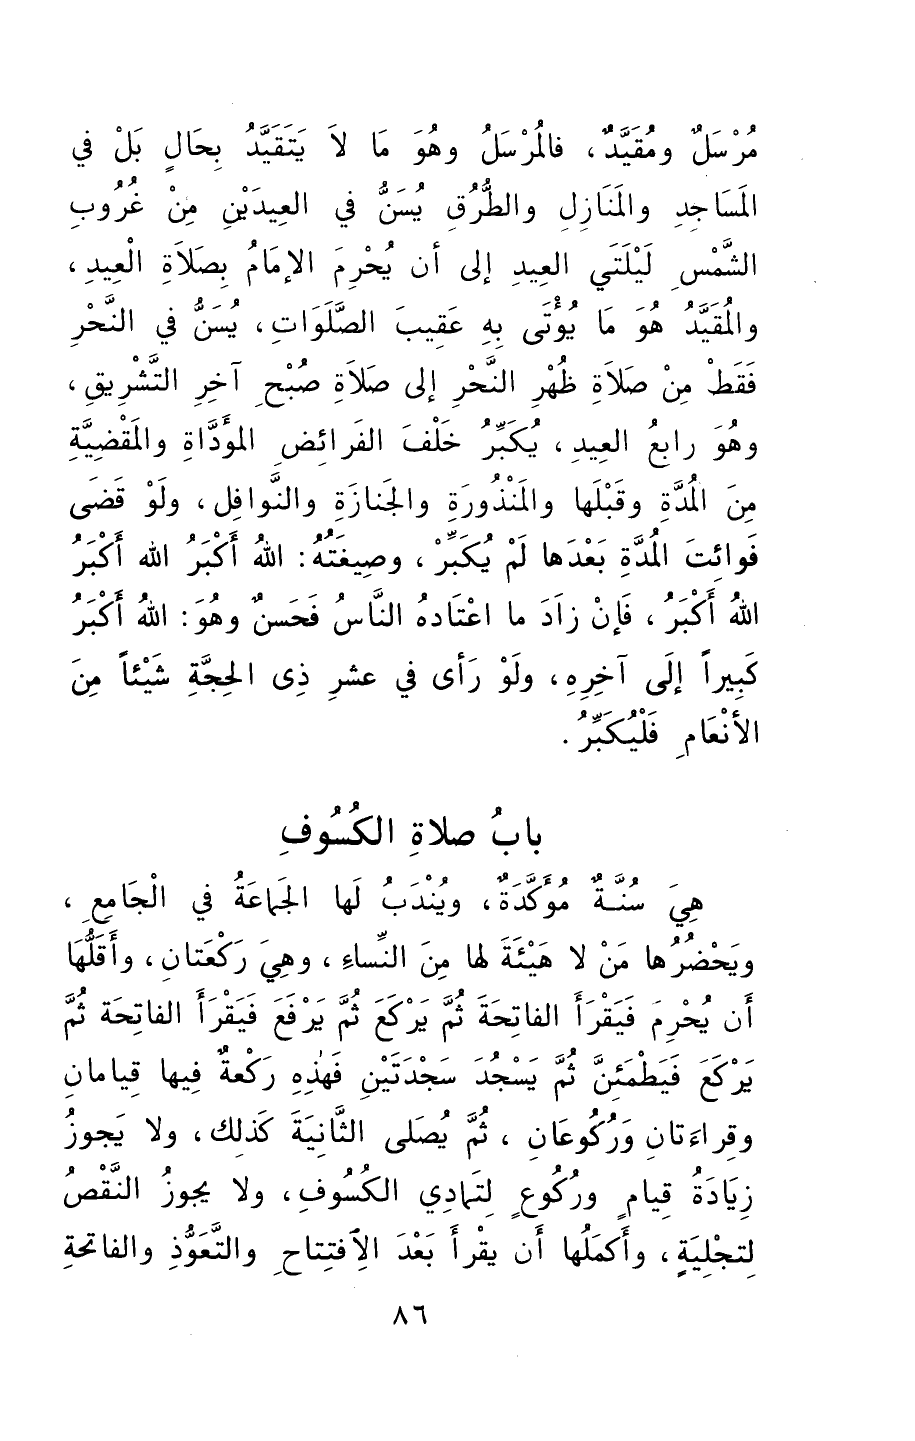 مُرْسَلٌ ومُقَيَّدٌ، فالمُرْسَلُ وهُوَ مَا لاَ يَتَقَيَّدُ بِحَالٍ بَلْ في
المَسَاجِدِ والمَنَازِلِ والطُّرُقِ يُسَنُّ في العِيدَيْنِ مِنْ غُرُوبِ
الشَّمْسِ لَيْلَتَي العِيدِ إلى أن يُحْرِمَ الإمَامُ بِصَلاَةِ الْعِيدِ،
والمُقَيَّدُ هُوَ مَا يُوْتَى بِهِ عَقِيبَ الصَّلَوَاتِ، يُسَنُّ في النَّحْرِ
فَقَطْ مِنْ صَلاَةِ ظُهْرِ النَّحْرِ إلى صَلاَةِ صُبْحِ آخِرِ التَّشْرِيقِ،
وهُوَ رابِعُ العِيدِ، يُكَبِّرُ خَلْفَ الفَرائِضِ المؤَدَّاةِ والمَقْضِيَّةِ
مِنَ المُدَّةِ وقَبْلَها والمَنْذُورَةِ والجَنازَةِ والنَّوافِلِ، ولَوْ قَضَى
فَوائِتَ المُدَّةِ بَعْدَها لَمْ يُكَبِّرْ، وصِيغَتُهُ: اللهُ أَكْبَرُ الله أَكْبَرُ
اللهُ أَكْبَرُ، فَإنْ زادَ ما اعْتَادهُ النَّاسُ فَحَسنٌ وهُوَ: اللهُ أَكْبَرُ
كَبِيراً إلَى آخِرِهِ، ولَوْ رَأى في عشرِ ذِى الحِجَّةِ شَيْئاً مِنَ
الأنْعَامِ فَلْيُكَبِّرُ.
بابُ صلاةِ الكُسُوفِ
هِيَ سُنَّةٌ مُؤَكَّدَةٌ، ويُنْدَبُ لَها الجَماعَةُ في الْجَامِعِ،
ويَحْضُرُها مَنْ لا هَيْئَةَ لها مِنَ النِّساءِ، وهِيَ رَكْعَتانِ، وأَقَلُّهَا
أن يُحْرِمَ فَيَقْرَأَ الفاتِحَةَ ثُمَّ يَرْكَعَ ثُمَّ يَرْفَعَ فَيَقْرَأَ الفاتِحَة ثُمَّ
يَرْكَعَ فَيَطْمَئِنَّ ثُمَّ يَسْجُدَ سَجْدَتَيْنِ فَهٰذِهِ رَكْعةٌ فِيها قِيامانِ
وقِراءَتانِ وَرُكُوعَانِ، ثُمَّ يُصَلى الثَّانِيَةَ كَذلِك، ولا يَجوزُ
زِيَادَةُ قِيامٍ ورُكُوعٍ لِتَمادِي الكُسُوفِ، ولا يجوزُ النَّقْصُ
لِتجْلِيَةٍ، وأَكمَلُها أن يقْرأَ بَعْدَ الاِفتِتاحِ والتَّعَوُّذِ والفاتحةِ
٨٦